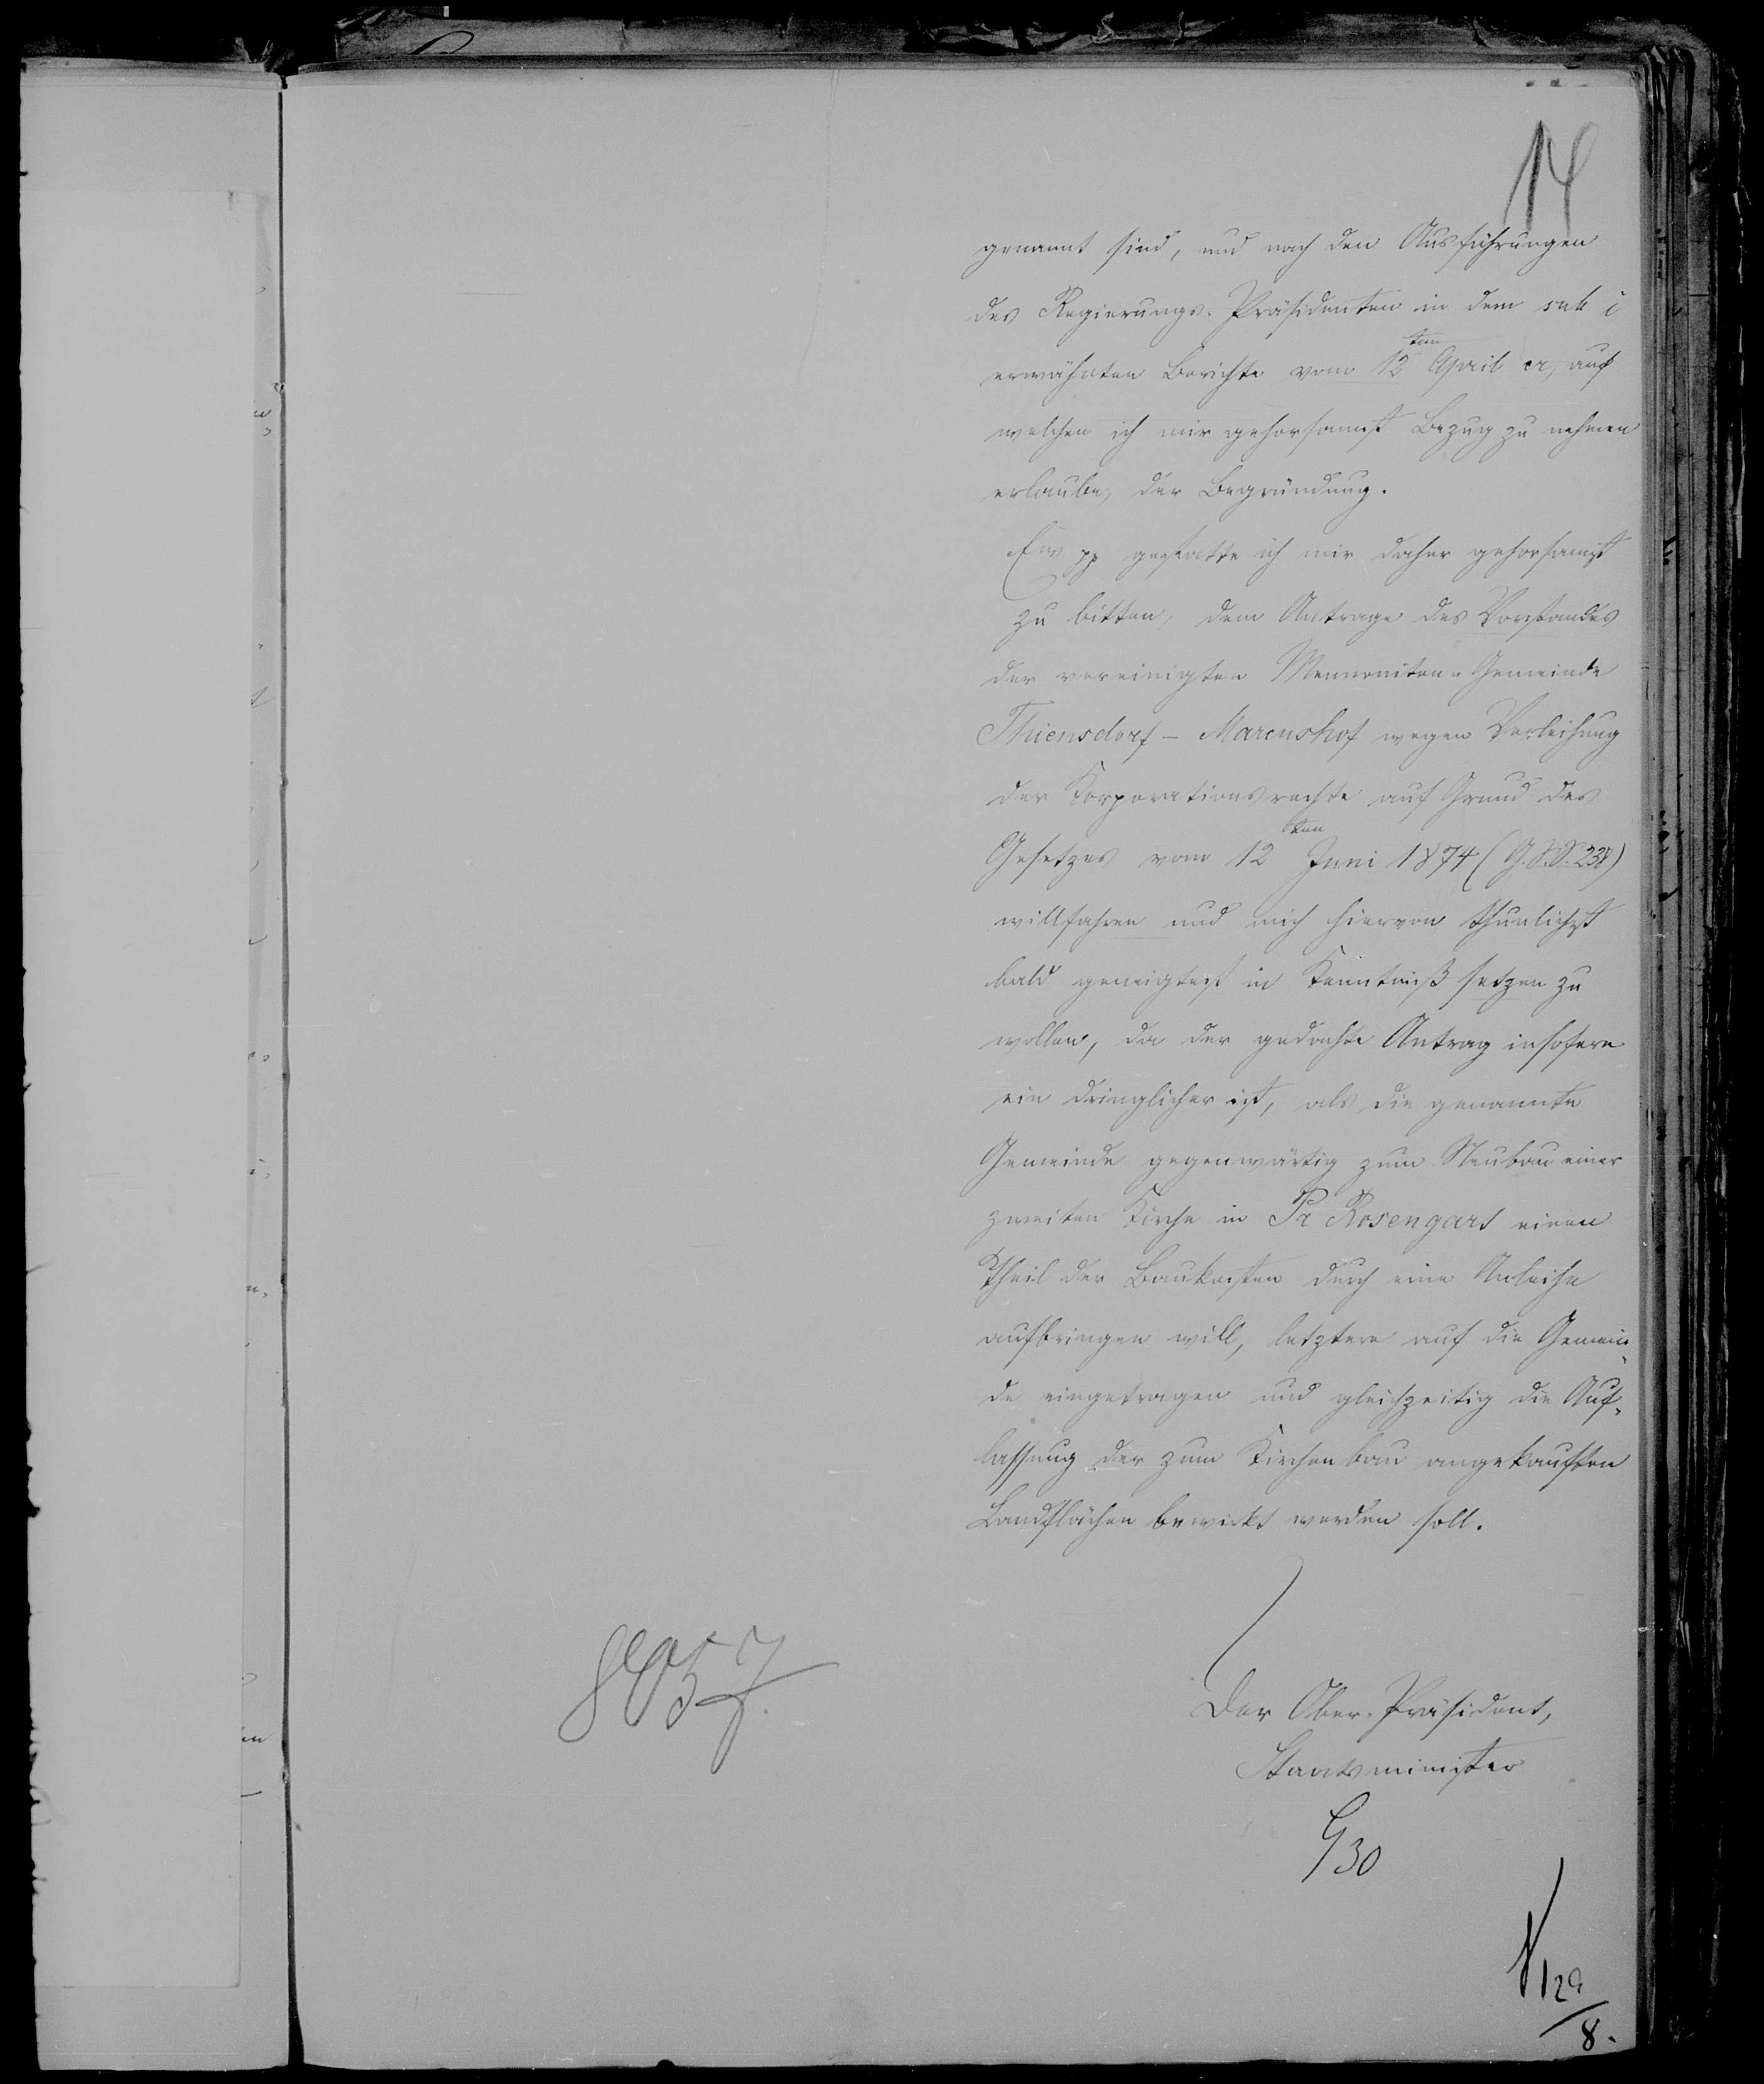 14
genannt sind, und nach den Ausführungen
des Regierungs-Präsidenten in dem sub i
erwähnten Berichte vom 12ten April cr, auf
welchen ich mir gehorsamst Bezug zu nehmen
erlaube, der Begründung.
Ew pp gestatte ich mir daher gehorsamst
zu bitten, dem Antrage des Vorstandes
der vereinigten Mennoniten-Gemeinde
Thiensdorf - Marcushof wegen Verleihung
der Korporationsrechte auf Grund des
Gesetzes vom 12ten Juni 1874 (G.S.S. 238)
willfahren und mich hiervon thunlichst
bald geneigtest in Kenntniß setzen zu
wollen, da der gedachte Antrag insofern
ein dringlicher ist, als die genannte
Gemeinde gegenwärtig zum Neubau einer
zweiten Kirche in Pr Rosengart einen
Theil der Baukosten durch eine Anleihe
aufbringen will, letztere auf die Gemein-
de eingetragen und gleichzeitig die Auf-
lassung der zum Kirchenbau angekauften
Landflächen bewirkt werden soll.
Der Ober-Präsident,
Staatsminister
30
29
8.